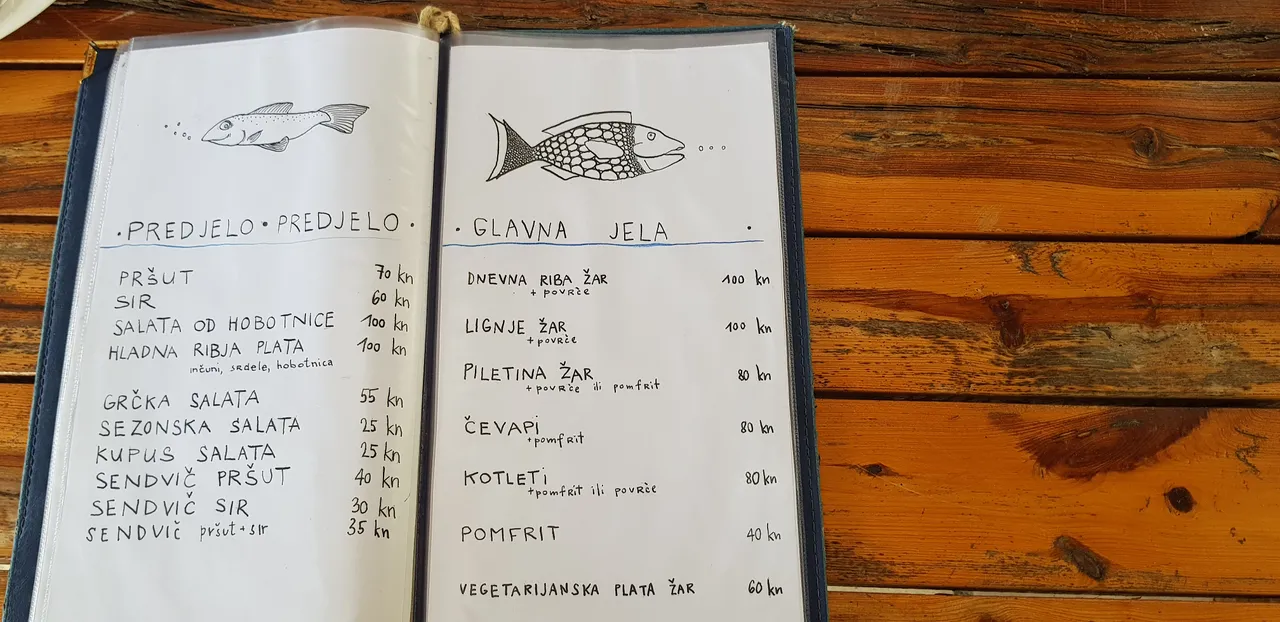 • PREDJELO • PREDJELO •
PRŠUT 70 kn
SIR 60 kn
SALATA OD HOBOTNICE 100 kn
HLADNA RIBJA PLATA 100 kn
inćuni, srdele, hobotnica
GRČKA SALATA 55 kn
SEZONSKA SALATA 25 kn
KUPUS SALATA 25 kn
SENDVIČ PRŠUT 40 kn
SENDVIČ SIR 30 kn
SENDVIČ pršut + sir 35 kn
• GLAVNA JELA •
DNEVNA RIBA ŽAR 100 kn
+ povrće
LIGNJE ŽAR 100 kn
+ povrće
PILETINA ŽAR 80 kn
+ povrće ili pomfrit
ČEVAPi 80 kn
+ pomfrit
KOTLETi 80 kn
+ pomfrit ili povrće
POMFRIT 40 kn
VEGETARIJANSKA PLATA ŽAR 60 kn